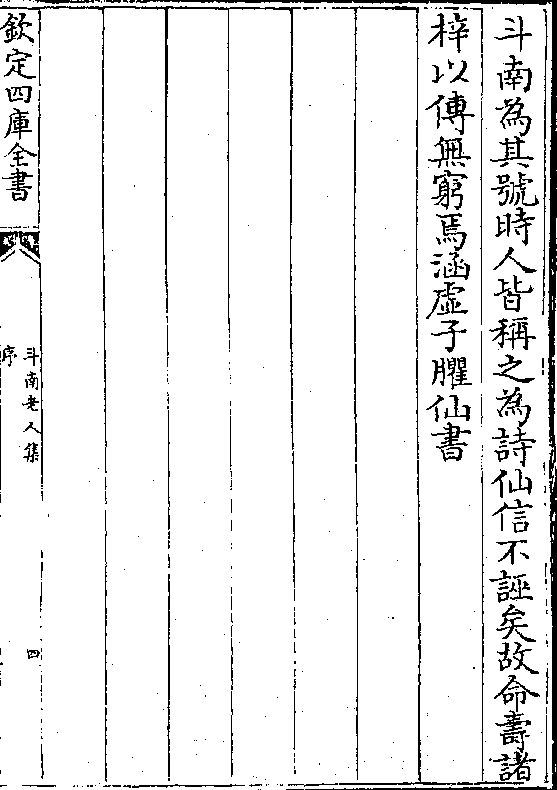 斗南為其號時人皆稱之為詩仙信不誣矣故命壽諸
梓以傳無窮焉涵虛子臞仙書
欽定四庫全書
斗南老人集
序
四